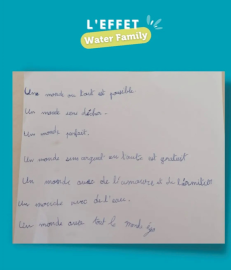 L'EFFET
Water Family
Un monde ou tout est possible.
Un monde sans déchet.
Un monde parfait.
Un monde sans argent en toute est gratuit
Un monde avec de l'ammour et de l'amitié
Un monde avec de l'eau.
Un monde avec tout le monde